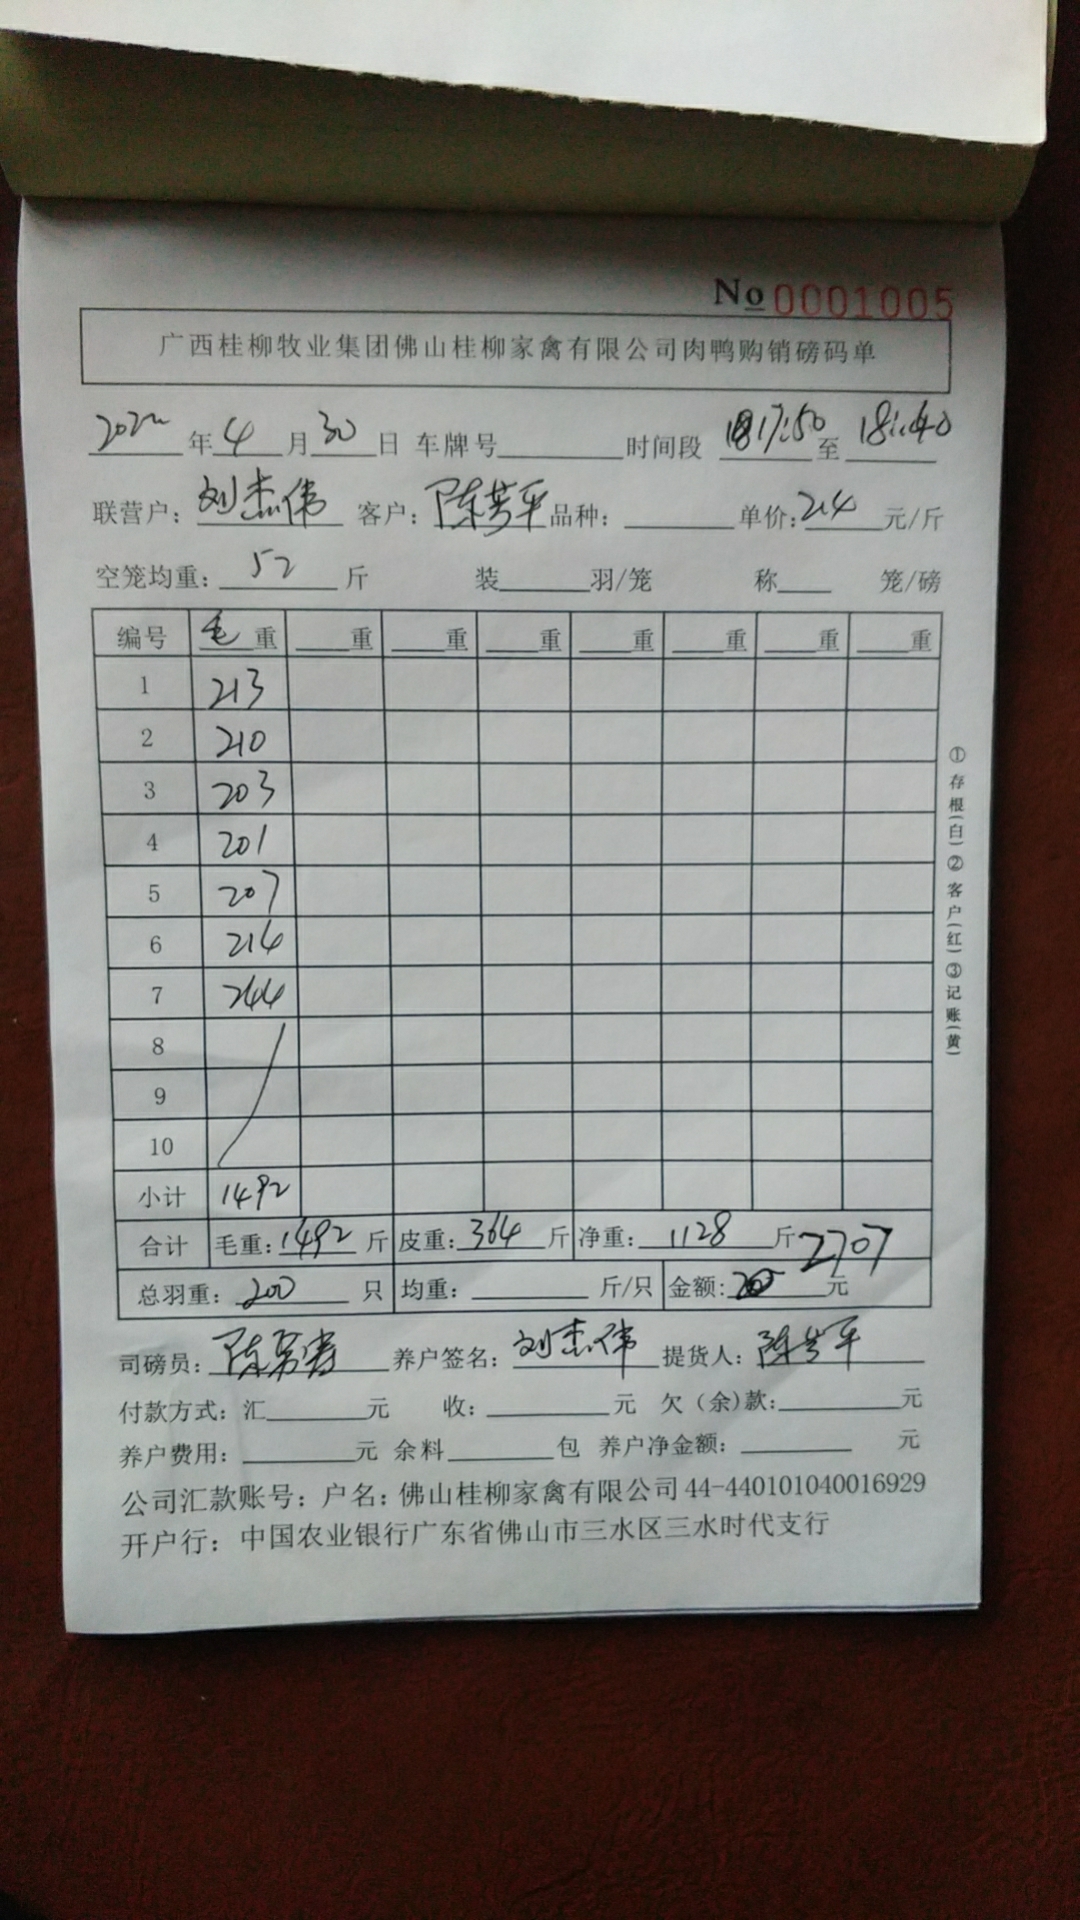 No 0001005
广西桂柳牧业集团佛山桂柳家禽有限公司肉鸭购销磅码单
2022年4月30日 车牌号 时间段 17:50至18:40
联营户：刘杰伟 客户：陈芳平 品种： 单价：2.4元/斤
空笼均重：52斤 装 羽/笼 称 笼/磅
编号 毛重 重 重 重 重 重 重 重
1 213
2 210
3 203
4 201
5 207
6 214
7 244
8
9
10
小计 1492
合计 毛重：1492斤 皮重：364斤 净重：1128斤
总羽重：200只 均重： 斤/只 金额： 2707元
司磅员： 养户签名：刘杰伟 提货人：陈芳平
付款方式：汇 元 收： 元 欠（余）款： 元
养户费用： 元 余料 包 养户净金额： 元
公司汇款账号：户名：佛山桂柳家禽有限公司 44-440101040016929
开户行：中国农业银行广东省佛山市三水区三水时代支行
①存根(白)②客户(红)③记账(黄)